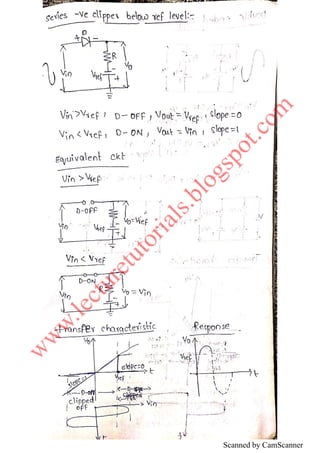 series -ve clipper below ref level:-
+ -
R
Vin
Vref
Vo
Vin>Vref, D-OFF, Vout = Vref, slope=0
Vin<Vref, D-ON, Vout = Vin, slope=1
Equivalent ckt
Vin > Vref
D-OFF
Vin
Vref
Vo=Vref
Vin < Vref
D-ON
Vin
R
Vo = Vin
Transfer characteristic
Response
Vo
Vo
slope=0
Vref
Vref
t
t
clipped
off
Vin
t
www.lecturetutorials.blogspot.com
Scanned by CamScanner